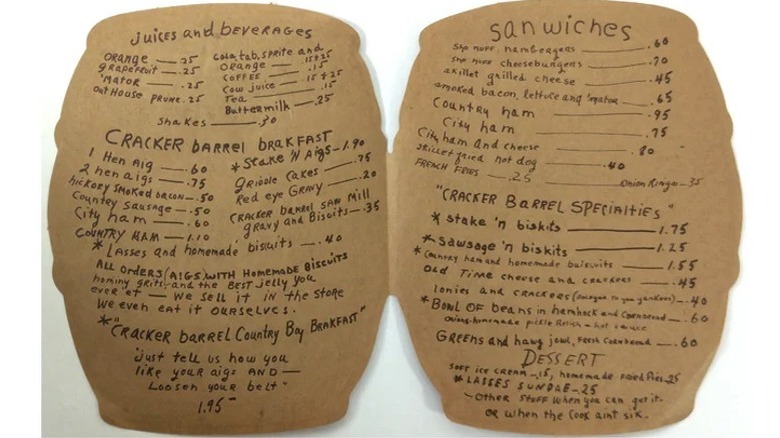 juices and beverages
ORANGE — .25
grapefruit — .25
'MATOR — .25
OutHouse PRUNE .25
Cola, tab, sprite and
ORANGE — .15+25
COFFEE — .15
COW juice — .15+25
Tea — .15
Buttermilk — .25
shakes — .50
CRACKER barrel brakfast
1 Hen Aig — .60
2 hen aigs — .75
hickory smoked bacon — .50
Country Sausage — .50
City ham — .60
COUNTRY HAM — 1.10
* Stake 'N Aigs — 1.90
griddle Cakes — .75
Red eye GRAVY — .20
CRACKER barrel SAW Mill
gravy and Biscuits — .35
* Lasses and homemade biscuits — .40
ALL Orders (AIGS) with Homemade Biscuits
hominy grits, and the Best jelly you
ever 'et — We sell it in the store
We even eat it ourselves.
* "Cracker barrel Country Boy Brakfast"
just tell us how you
like your aigs AND —
Loosen your belt"
1.95
sanwiches
sho nuff, hambergers — .60
sho nuff cheeseburgers — .70
skillet grilled cheese — .45
smoked bacon, lettuce and 'mator — .65
Country ham — .95
City ham — .75
City ham and cheese — .80
skillet fried hot dog — .40
FRENCH FRIES — .25
Onion Rings — .35
"CRACKER BARREL SPECIALTIES"
* stake 'n biskits — 1.75
* Sausage 'n biskits — 1.25
* Country ham and homemade buiscuits — 1.55
Old Time cheese and crackers — .45
lonies and crackers (bologna to you yankees) — .40
* BOWL OF beans in hamhock and Cornbread — .60
onions-homemade pickle Relish - hot sauce
Greens and hawg jowl, fresh cornbread — .60
DESSERT
soft ice cream — .15, homemade fried Pies .25
* LASSES SUNDAE - .25
- Other stuff when you can get it.
OR when the Cook aint sik.